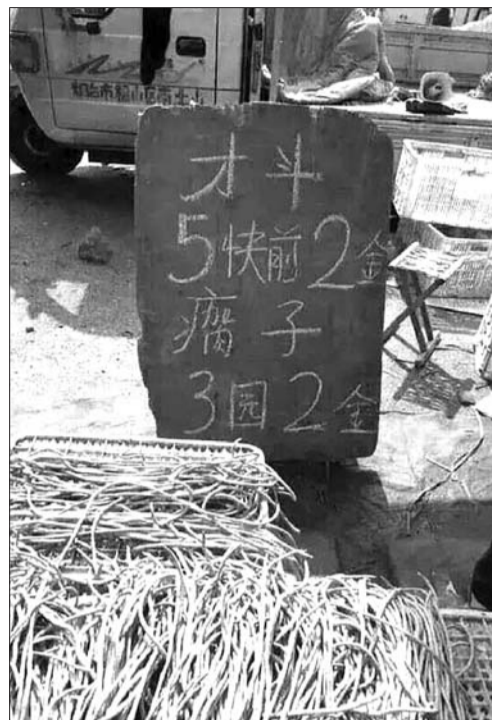 才斗
5快前2金
瘸子
3园2金